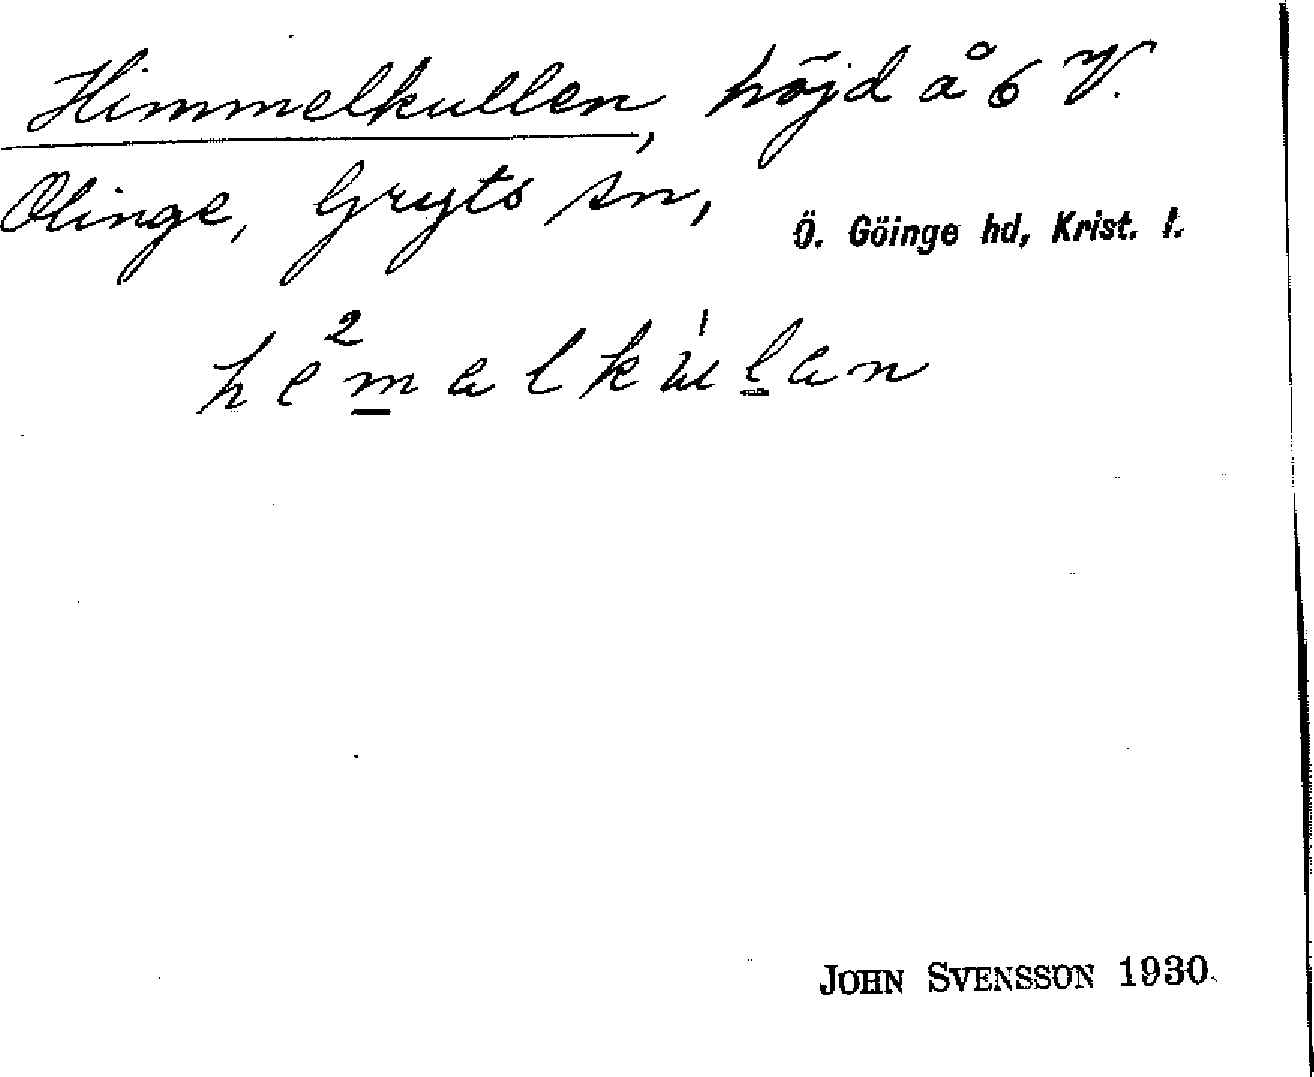 Himmelkullen, höjd å 6 V.
Olinge, Gryts sn, Ö. Göinge hd, Krist. l.
JOHN SVENSSON 1930